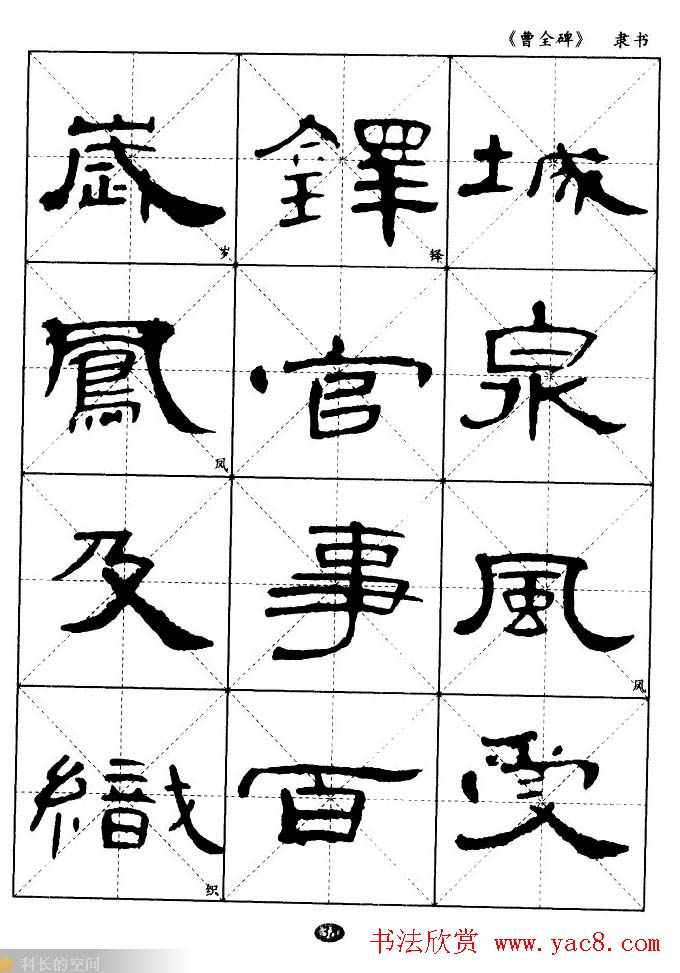 《曹全碑》 隶书
城泉風受
鐸官事百
铎
风
歲鳳及織
岁
凤
织
书法欣赏 www.yac8.com
科长的空间